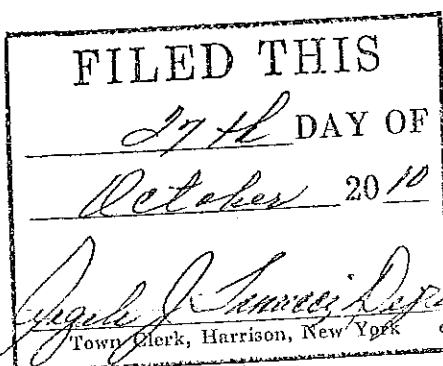 FILED THIS
27th DAY OF
October 2010
J
Town Clerk, Harrison, New York